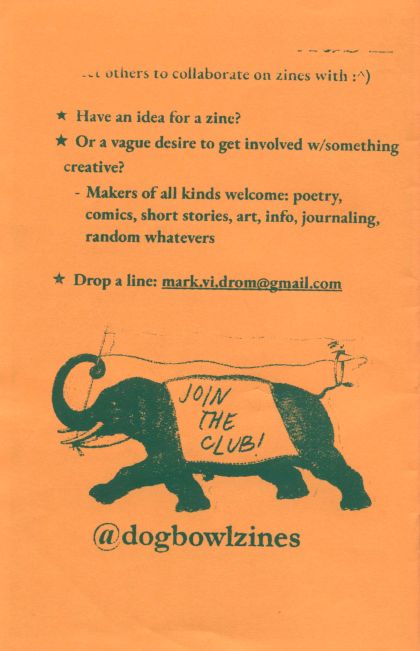 others to collaborate on zines with :^)
★ Have an idea for a zine?
★ Or a vague desire to get involved w/something
creative?
- Makers of all kinds welcome: poetry,
comics, short stories, art, info, journaling,
random whatevers
★ Drop a line: mark.vi.drom@gmail.com
JOIN
THE
CLUB!
@dogbowlzines